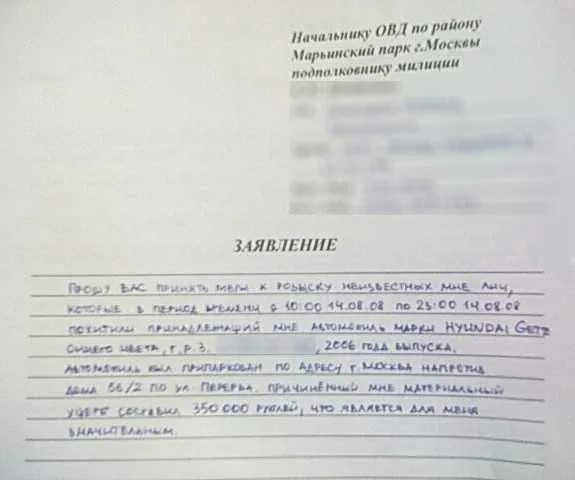 Начальнику ОВД по району
Марьинский парк г.Москвы
подполковнику милиции
ЗАЯВЛЕНИЕ
Прошу Вас принять меры к розыску неизвестных мне лиц,
которые в период времени с 10:00 14.08.08 по 23:00 14.08.08
похитили принадлежащий мне автомобиль марки HYUNDAI GETZ
синего цвета, г.р.з. , 2006 года выпуска.
Автомобиль был припаркован по адресу г.Москва напротив
дома 56/2 по ул. Перерва. Причинённый мне материальный
ущерб составил 350 000 рублей, что является для меня
значительным.